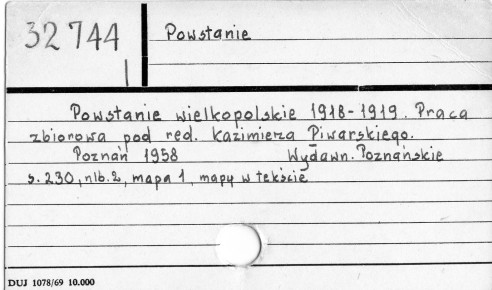 32 744
Powstanie
Powstanie wielkopolskie 1918-1919. Praca
zbiorowa pod red. Kazimierza Piwarskiego.
Poznań 1958 Wydawn. Poznańskie
s. 230, nlb. 2, mapa 1, mapy w tekście
DUJ 1078/69 10.000